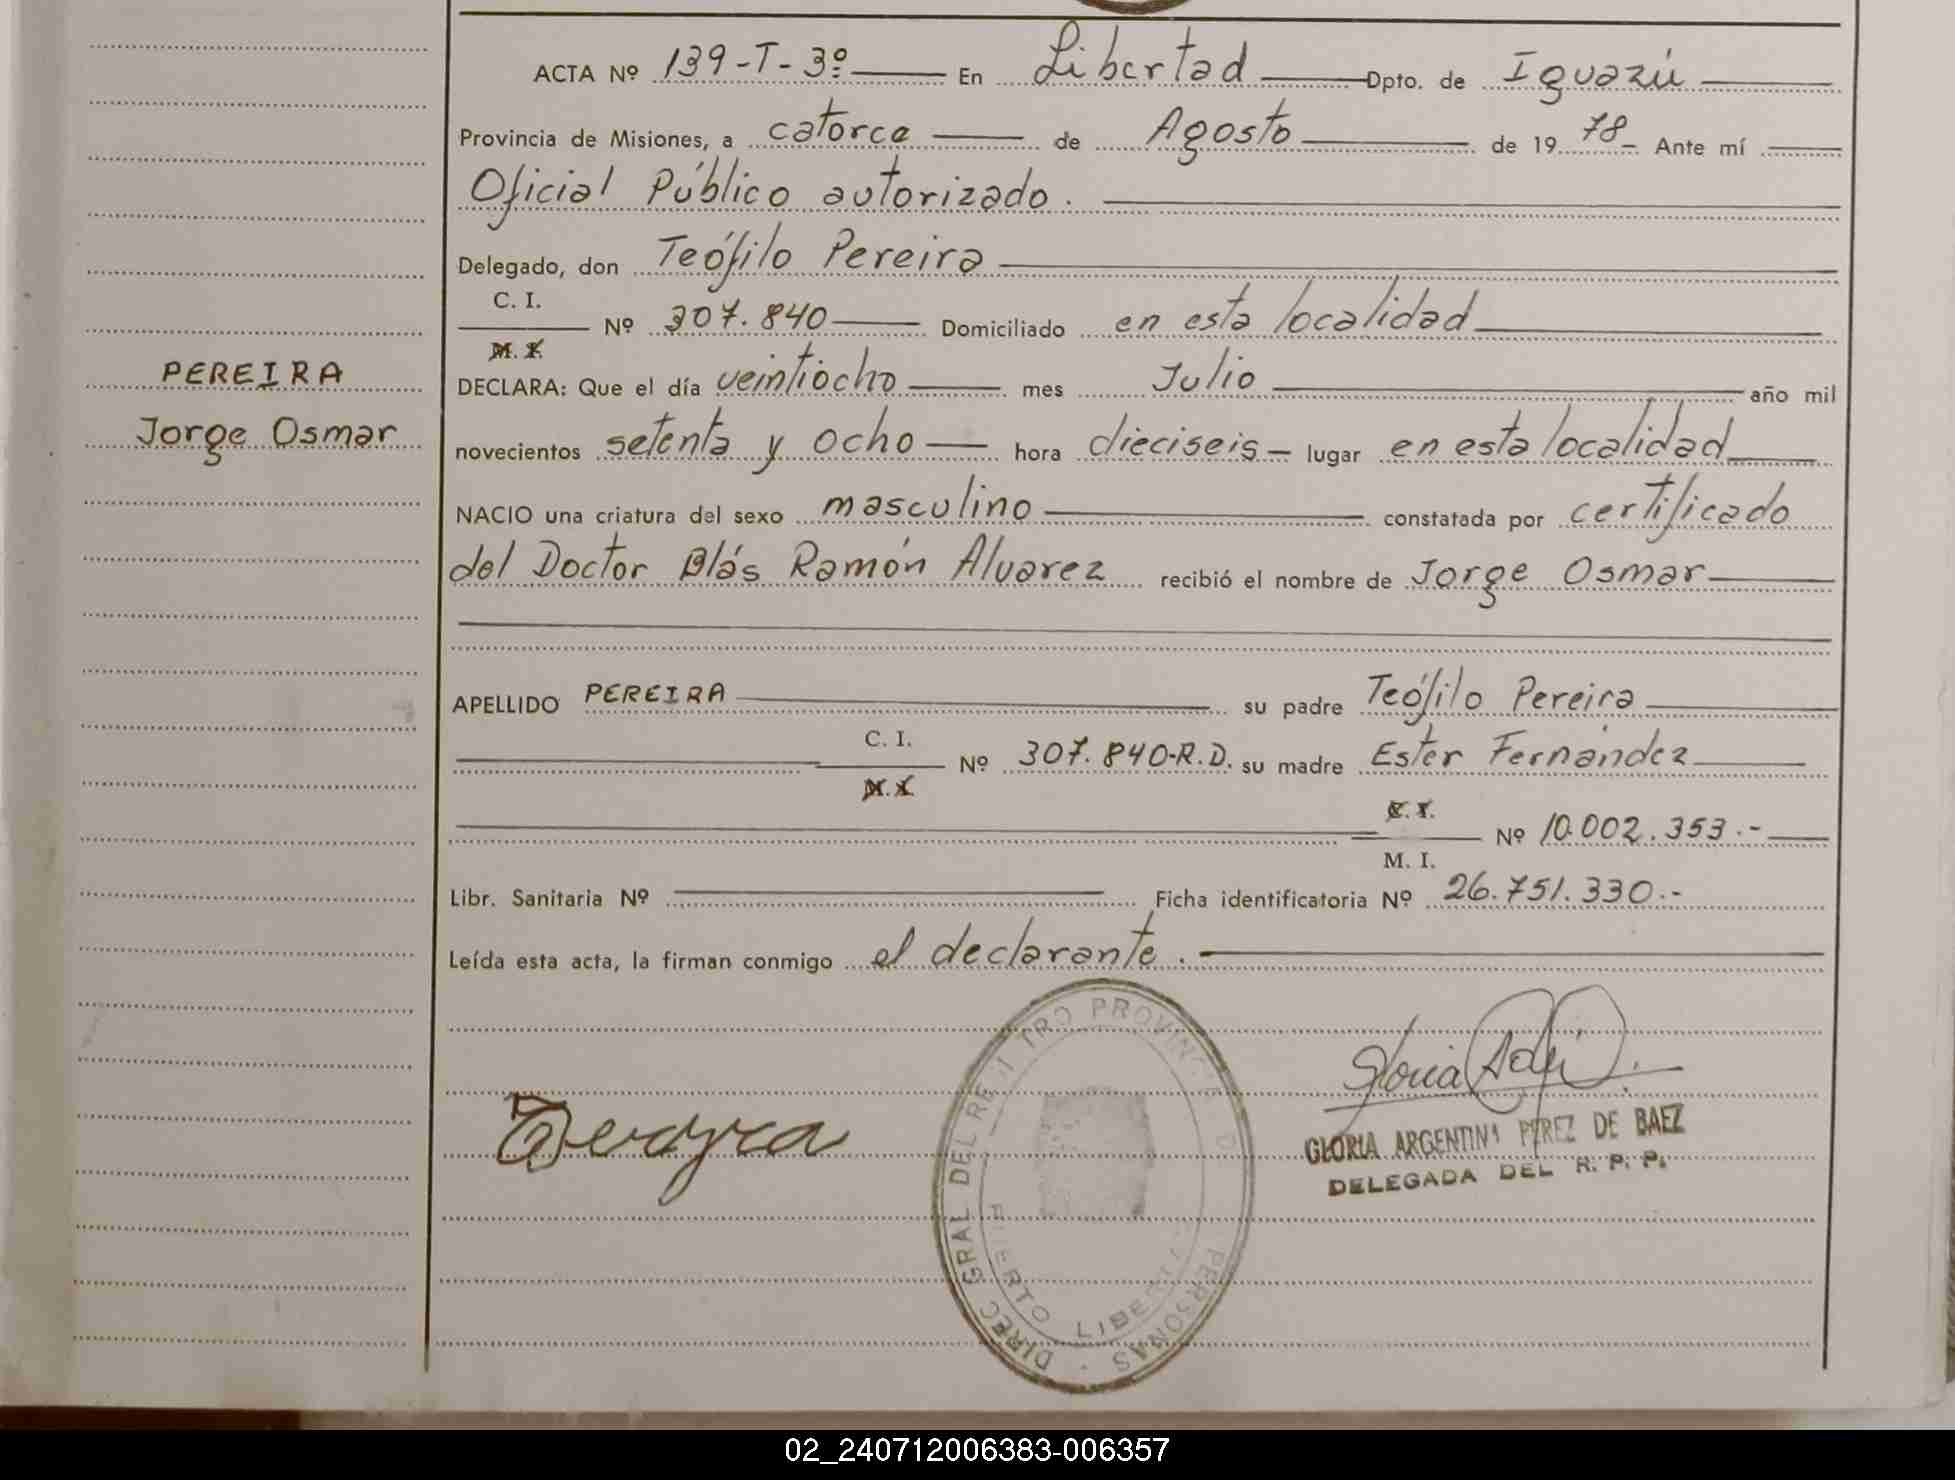 ACTA Nº 139-T-3º En Libertad Dpto. de Iguazú
Provincia de Misiones, a catorce de Agosto de 1978- Ante mí
Oficial Público autorizado.
Delegado, don Teófilo Pereira
C. I.
Nº 307.840 Domiciliado en esta localidad
M. I.
PEREIRA
Jorge Osmar
DECLARA: Que el día veintiocho mes Julio año mil
novecientos setenta y ocho hora dieciseis lugar en esta localidad
NACIO una criatura del sexo masculino constatada por certificado
del Doctor Blás Ramón Alvarez recibió el nombre de Jorge Osmar
APELLIDO PEREIRA su padre Teófilo Pereira
C. I.
Nº 307.840-R.D. su madre Ester Fernández
M. I.
C. I.
Nº 10.002.353.-
M. I.
Libr. Sanitaria Nº Ficha identificatoria Nº 26.751.330.-
Leída esta acta, la firman conmigo el declarante.
DIREC GRAL DEL REGISTRO PROVINCIAL DE PERSONAS
PUERTO LIBERTAD
GLORIA ARGENTINA PEREZ DE BAEZ
DELEGADA DEL R. P. P.
02_240712006383-006357